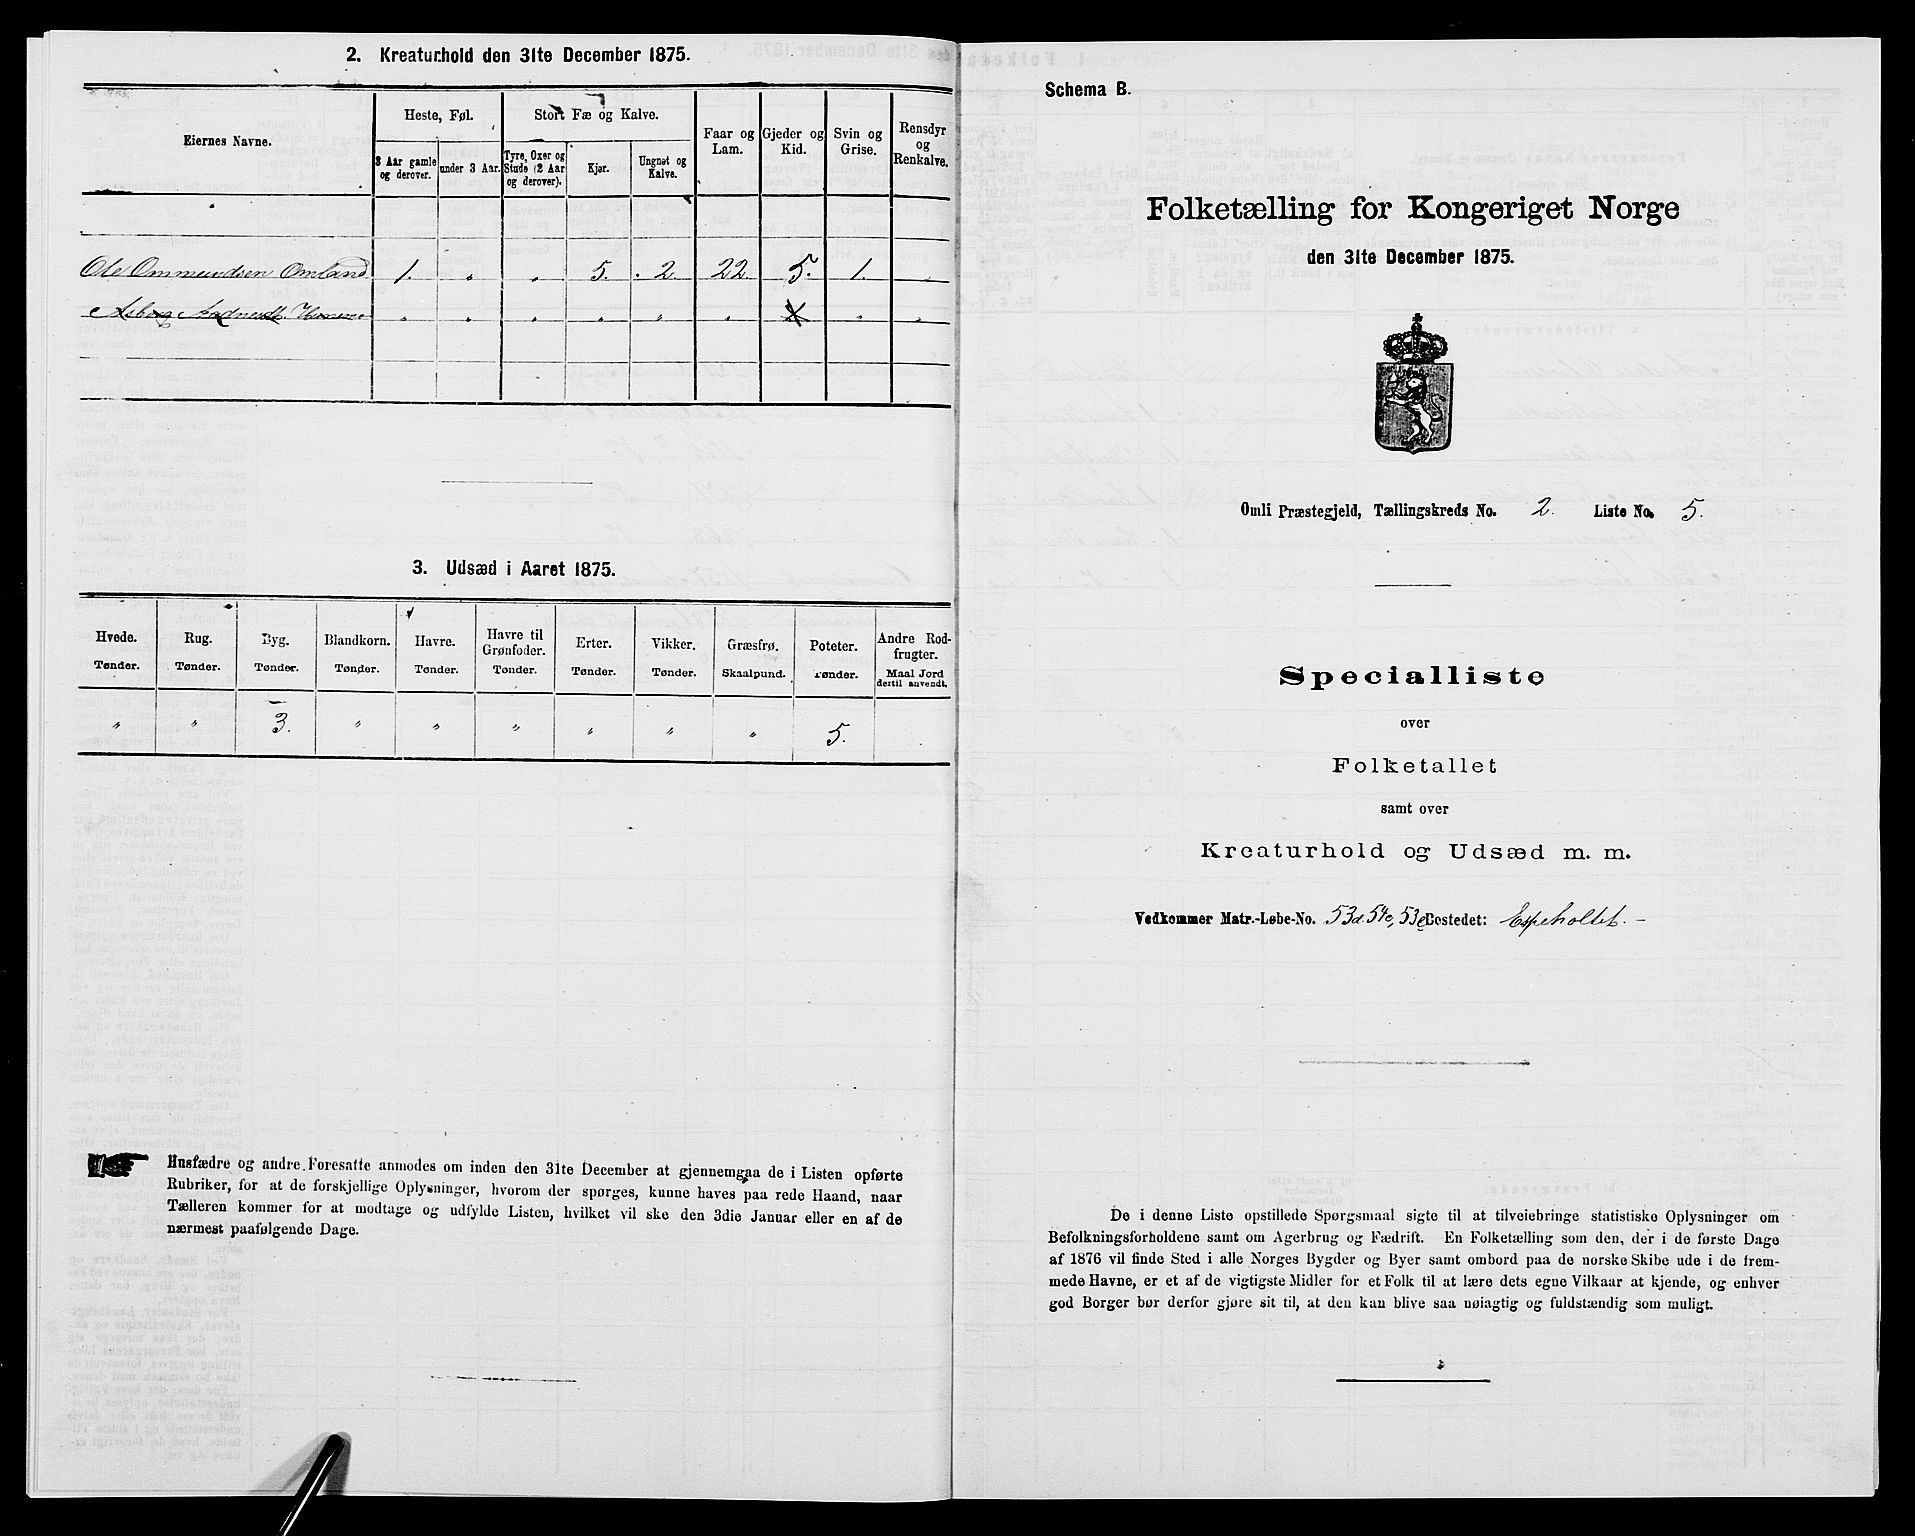 2. Kreaturhold den 31te December 1875.
Eiernes Navne.
Heste, Føl.
3 Aar gamle og derover.
under 3 Aar.
Stort Fæ og Kalve.
Tyre, Oxer og Stude (2 Aar og derover).
Kjør.
Ungnøt og Kalve.
Faar og Lam.
Gjeder og Kid.
Svin og Grise.
Rensdyr og Renkalve.
Ole Ommundsen Omland 1. " " 5. 2. 22. 5. 1. "
" " " " " " X " "
3. Udsæd i Aaret 1875.
Hvede. Tønder.
Rug. Tønder.
Byg. Tønder.
Blandkorn. Tønder.
Havre. Tønder.
Havre til Grønfoder. Tønder.
Erter. Tønder.
Vikker. Tønder.
Græsfrø. Skaalpund.
Poteter. Tønder.
Andre Rodfrugter. Maal Jord dertil anvendt.
" " 3. " " " " " " 5.
Husfædre og andre Foresatte anmodes om inden den 31te December at gjennemgaa de i Listen opførte
Rubriker, for at de forskjellige Oplysninger, hvorom der spørges, kunne haves paa rede Haand, naar
Tælleren kommer for at modtage og udfylde Listen, hvilket vil ske den 3die Januar eller en af de
nærmest paafølgende Dage.
Schema B.
Folketælling for Kongeriget Norge
den 31te December 1875.
Omli Præstegjeld, Tællingskreds No. 2. Liste No. 5.
Specialliste
over
Folketallet
samt over
Kreaturhold og Udsæd m. m.
Vedkommer Matr.-Løbe-No. 53d, 54c, 53e Bostedet: Espeholtet. -
De i denne Liste opstillede Spørgsmaal sigte til at tilveiebringe statistiske Oplysninger om
Befolkningsforholdene samt om Agerbrug og Fædrift. En Folketælling som den, der i de første Dage
af 1876 vil finde Sted i alle Norges Bygder og Byer samt ombord paa de norske Skibe ude i de frem-
mede Havne, er et af de vigtigste Midler for et Folk til at lære dets egne Vilkaar at kjende, og enhver
god Borger bør derfor gjøre sit til, at den kan blive saa nøiagtig og fuldstændig som muligt.